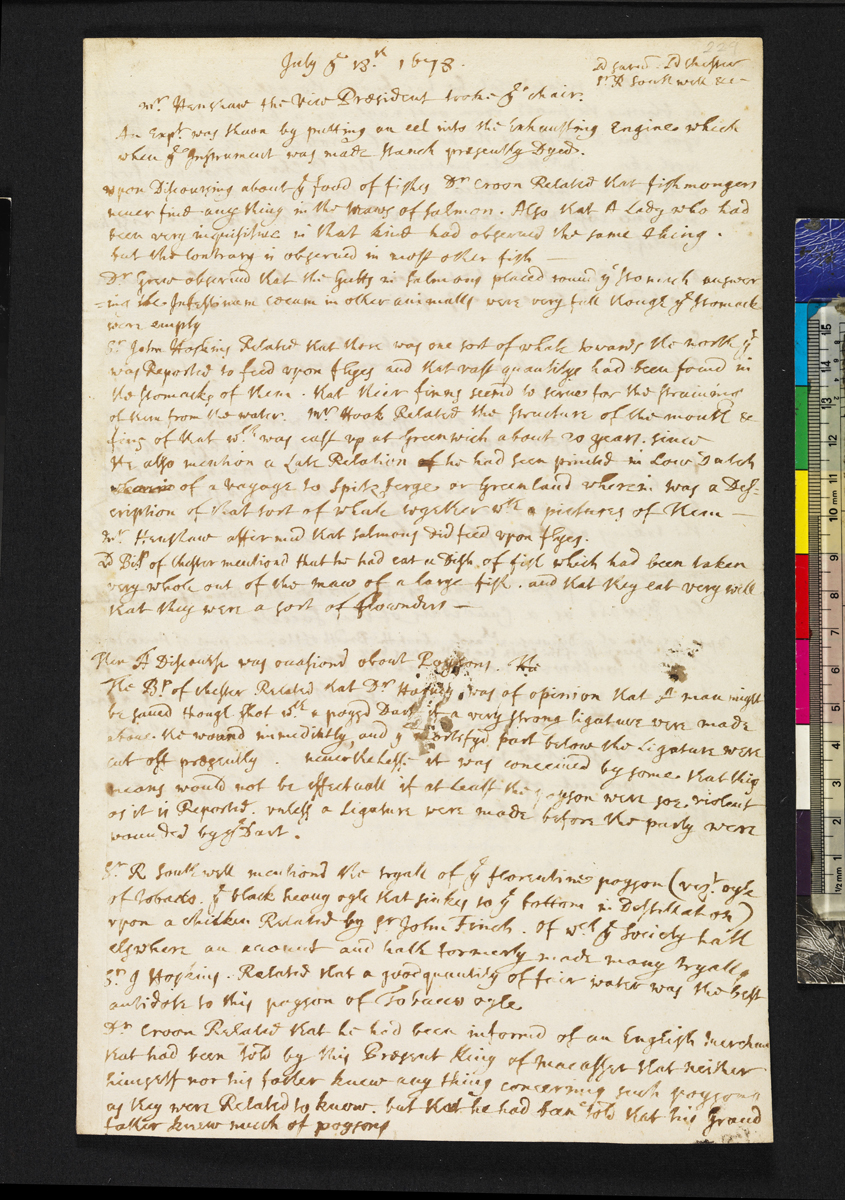 229
July ye 18.th 1678.
Ld Sarum Ld Chester
Sr R Southwell &c
Mr. Henshaw the Vice Præsident tooke ye chair.
An Expt was shewn by putting an eel into the Exhausting Engine which
when ye Instrument was made stanch presently Dyed.
upon Discoursing about ye food of fishes Dr Croon Related that fishmongers
never find any thing in the maws of Salmon. Also that A Lady who had
been very inquisitive in that kind had observed the same thing.
but the contrary is observed in most other fish
Dr Grew observed that the Gutts in salmons placed round ye stomach answer
=ing the Intestinum cæcum in other animalls were very full though ye stomack
were empty
Sr John Hoskins Related that there was one sort of whale towards the north yt
was Reported to feed upon flyes and that vast quantitys had been found in
the stomacks of them. that their finns seemd to serve for the straining
of them from the water. Mr. Hook Related the structure of the mouth &
fins of that wch was cast up at Greenwich about 20 years. since
He also mention a Late Relation he had seen printed in Low Dutch
of a vayage to Spitsberge or Greenland wherein was a Des-
cription of that sort of whale together wth pictures of them
Mr. Henshaw affirmd that salmons did feed upon flyes.
Ld Bip of Chester mentiond that he had eat a Dish of fish which had been taken
very whole out of the maw of a large fish. and that they eat very well
that they were a sort of flownders
Then A Discourse was occasiond about Poysons. The
The Bp of Chester Related that Dr Harvey was of opinion that a man might
be saved though shot wth a poysd Dart if a very strong ligature were made
above the wound immediatly, and ye mortifyd part below the Ligature were
cut off presently. neverthelesse it was conceived by some that this
means would not be effectuall if at Least the poyson were soe violent
as it is Reported. unless a Ligature were made before the party were
wounded by ye Dart.
Sr R Southwell mentiond the tryale of ye florentine poyson (vizt. oyle
of tobacko. ye black heavy oyle that sinkes to ye bottom in Destillation)
upon a chicken Related by Sr John Finch. of wch ye Society hath
elswhere an account and hath formerly made many tryalls
Sr J Hoskins. Related that a good quantity of fair water was the best
antidote to this poyson of Tobacco oyle
Dr Croon Related that he had been informd of an English merchant
that had been told by this Present King of Macasser that neither
himself nor his father knew any thing concerning such poysons
as they were Related to know. but that he had been told that his Grand
father knew much of poysons